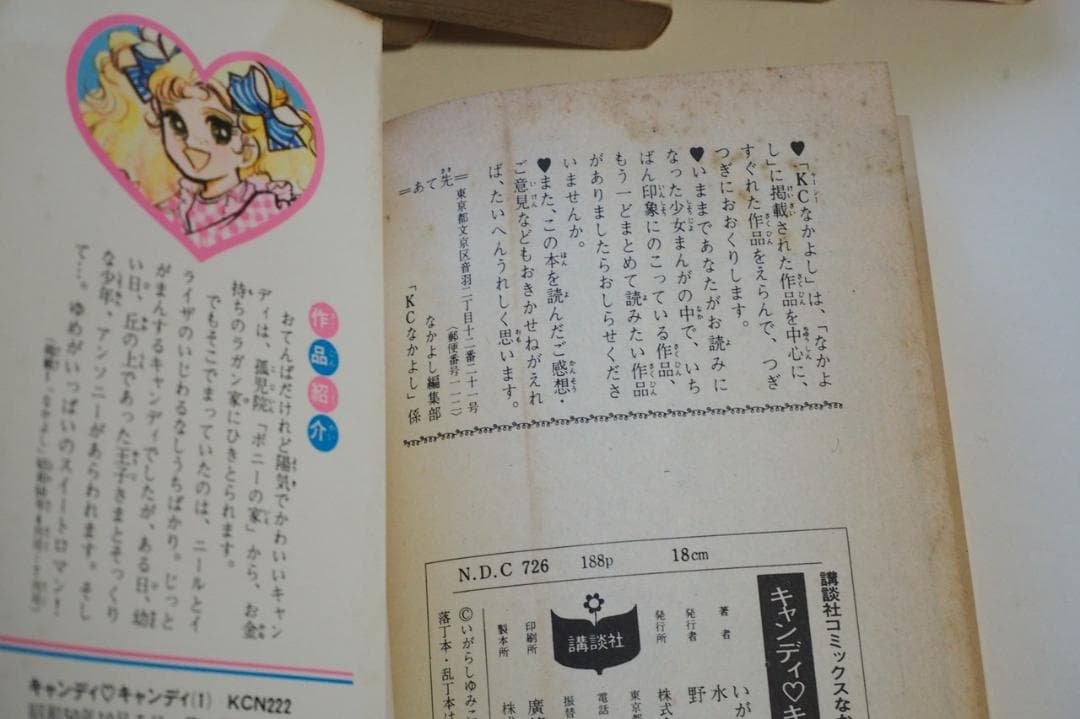 作品紹介
おてんばだけれど陽気でかわいいキャン
ディは、孤児院「ポニーの家」から、お金
持ちのラガン家にひきとられます。
でもそこでまっていたのは、ニールとイ
ライザのいじわるなしうちばかり。じっと
がまんするキャンディでしたが、ある日、幼
い日、丘の上であった王子さまとそっくり
な少年、アンソニーがあらわれます。そし
て…。ゆめがいっぱいのスイートロマン!
キャンディ♡キャンディ(1) KCN222
♥「KCなかよし」は、「なかよ
し」に掲載された作品を中心に、
すぐれた作品をえらんで、つぎ
つぎにおおくりします。
♥いままであなたがお読みに
なった少女まんがの中で、いち
ばん印象にのこっている作品、
もう一どまとめて読みたい作品
がありましたらおしらせくださ
いませんか。
♥また、この本を読んだご感想・
ご意見などもおきかせねがえれ
ば、たいへんうれしく思います。
=あて先=
東京都文京区音羽二丁目十二番二十一号
(郵便番号一一二)
なかよし編集部
「KCなかよし」係
N.D.C 726 188p 18cm
講談社コミックスなか
キャンディ♡キ
著者
いが
水
発行者
野
発行所
株式
東京都
電話
振替
講談社
印刷所
廣
製本所
株式
©いがらしゆみこ
落丁本・乱丁本は